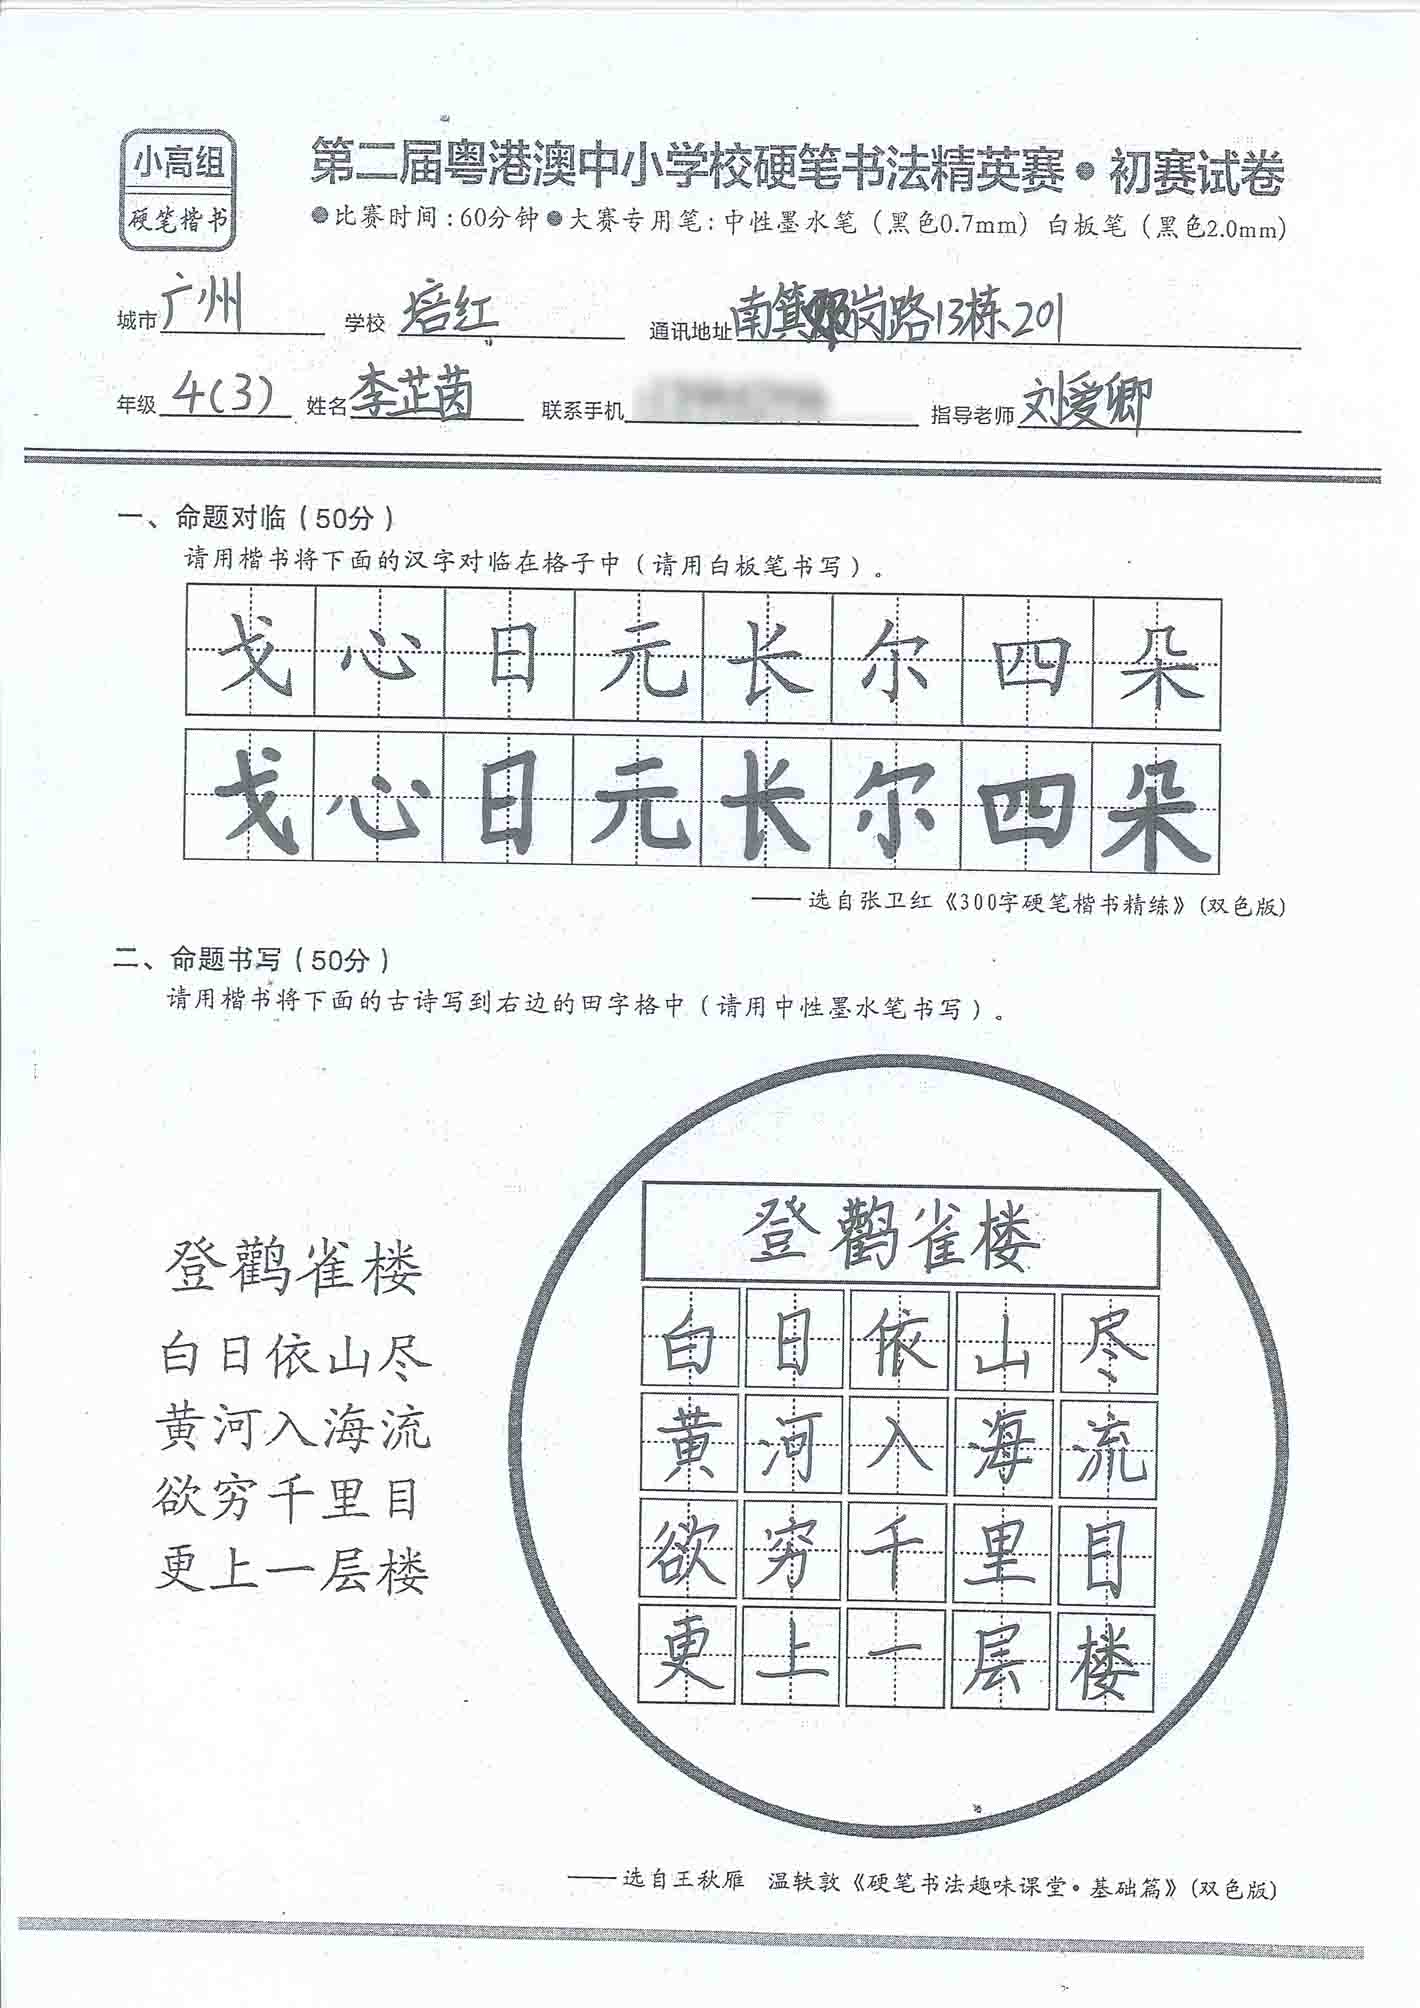 小高组
硬笔楷书
第二届粤港澳中小学校硬笔书法精英赛·初赛试卷
●比赛时间:60分钟●大赛专用笔:中性墨水笔(黑色0.7mm) 白板笔(黑色2.0mm)
城市 广州 学校 培红 通讯地址 南箕岗路13栋201
年级 4(3) 姓名 李芷茵 联系手机 指导老师 刘爱卿
一、命题对临(50分)
请用楷书将下面的汉字对临在格子中(请用白板笔书写)。
戈心日元长尔四朵
戈心日元长尔四朵
——选自张卫红《300字硬笔楷书精练》(双色版)
二、命题书写(50分)
请用楷书将下面的古诗写到右边的田字格中(请用中性墨水笔书写)。
登鹳雀楼
白日依山尽
黄河入海流
欲穷千里目
更上一层楼
登鹳雀楼
白日依山尽
黄河入海流
欲穷千里目
更上一层楼
——选自王秋雁 温轶敦《硬笔书法趣味课堂·基础篇》(双色版)